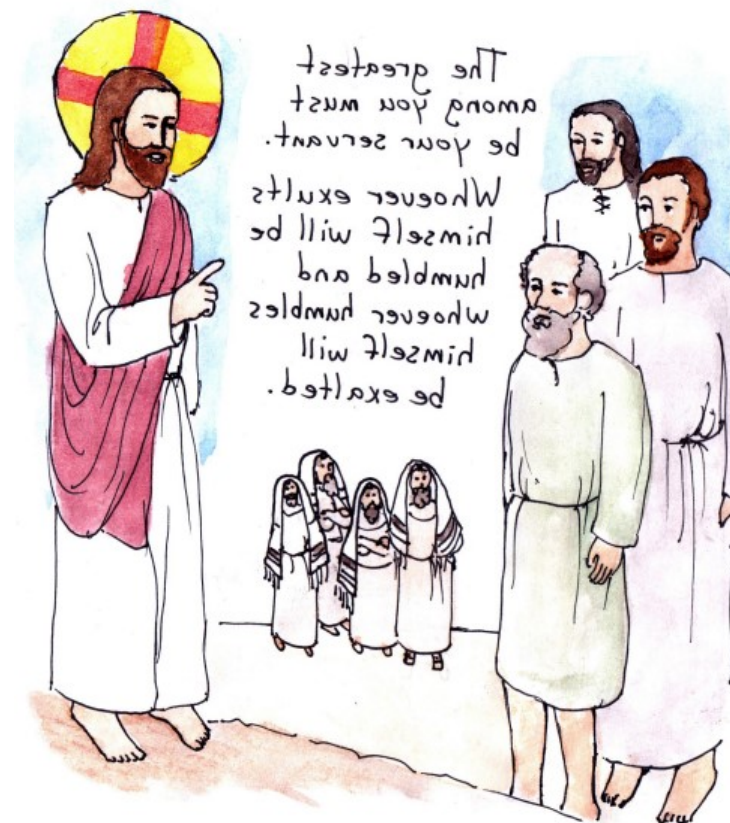 The greatest
among you must
be your servant.
Whoever exults
himself will be
humbled and
whoever humbles
himself will
be exalted.